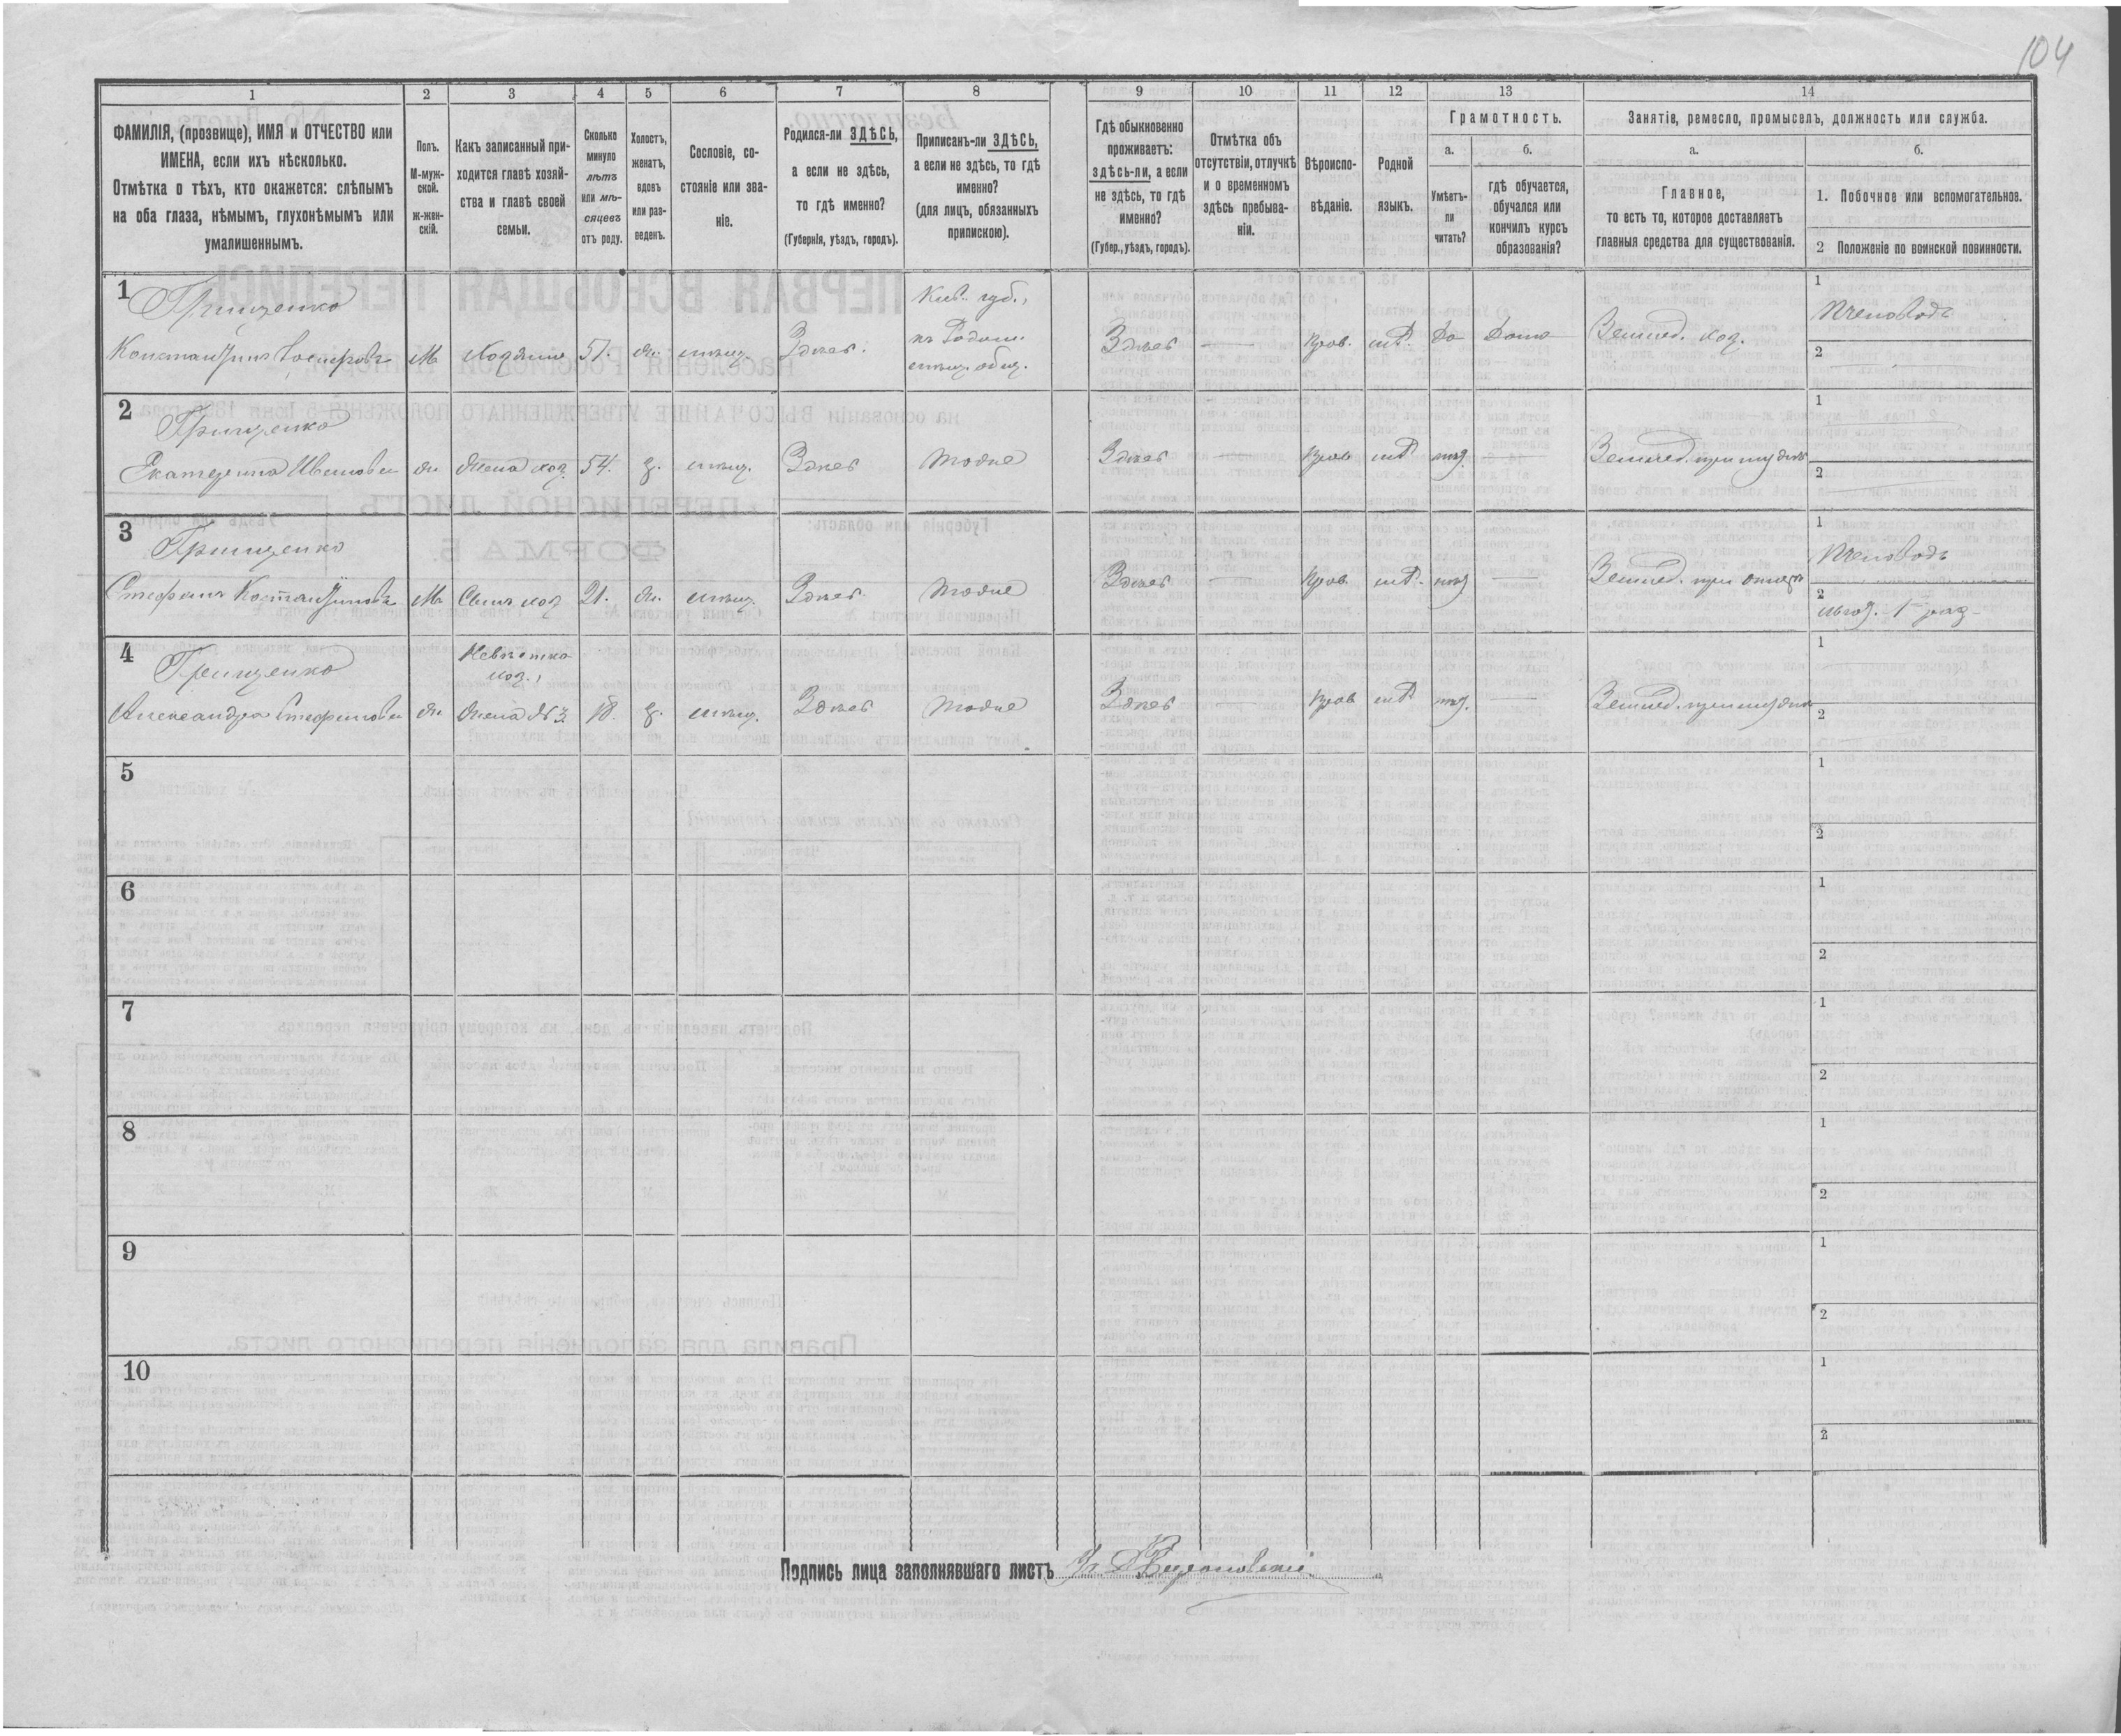 104
1 2 3 4 5 6 7 8 9 10 11 12 13 14
ФАМИЛІЯ, (прозвище), ИМЯ и ОТЧЕСТВО или
ИМЕНА, если ихъ нѣсколько.
Отмѣтка о тѣхъ, кто окажется: слѣпымъ
на оба глаза, нѣмымъ, глухонѣмымъ или
умалишеннымъ.
Полъ.
М-муж-
ской.
ж-жен-
скій.
Какъ записанный при-
ходится главѣ хозяй-
ства и главѣ своей
семьи.
Сколько
минуло
лѣтъ
или мѣ-
сяцевъ
отъ роду.
Холостъ,
женатъ,
вдовъ
или раз-
веденъ.
Сословіе, со-
стояніе или зва-
ніе.
Родился-ли ЗДѢСЬ,
а если не здѣсь,
то гдѣ именно?
(Губернія, уѣздъ, городъ).
Приписанъ-ли ЗДѢСЬ,
а если не здѣсь, то гдѣ
именно?
(для лицъ, обязанныхъ
припискою).
Гдѣ обыкновенно
проживаетъ:
здѣсь-ли, а если
не здѣсь, то гдѣ
именно?
(Губер., уѣздъ, городъ).
Отмѣтка объ
отсутствіи, отлучкѣ
и о временномъ
здѣсь пребыва-
ніи.
Вѣроиспо-
вѣданіе.
Родной
языкъ.
Грамотность.
а.
Умѣетъ-
ли
читать?
б.
гдѣ обучается,
обучался или
кончилъ курсъ
образованія?
Занятіе, ремесло, промыселъ, должность или служба.
а.
Главное,
то есть то, которое доставляетъ
главныя средства для существованія.
б.
1. Побочное или вспомогательное.
2 Положеніе по воинской повинности.
1
Грищенко
Константинъ
М
Хозяинъ
51.
Здѣсь
Кіев. губ.,
Здѣсь
Прав.
да
Дома
Землед. хоз.
1
Пчеловодъ
2
2
Грищенко
Екатерина Ивановна
ж
Жена хоз.
54.
Здѣсь
тоже
Здѣсь
Прав
1
2
3
Грищенко
Стефанъ Константиновъ
М
Сынъ хоз
21.
Здѣсь
тоже
Здѣсь
Прав
Земледѣл. при отцѣ
1
Пчеловодъ
2
льгот. 1 раз
4
Грищенко
Александра Стефанова
ж
Невѣстка
хоз.,
Жена № 3
18.
Здѣсь
тоже
Здѣсь
Прав
1
2
5
1
2
6
1
2
7
1
2
8
1
2
9
1
2
10
1
2
Подпись лица заполнявшаго листъ